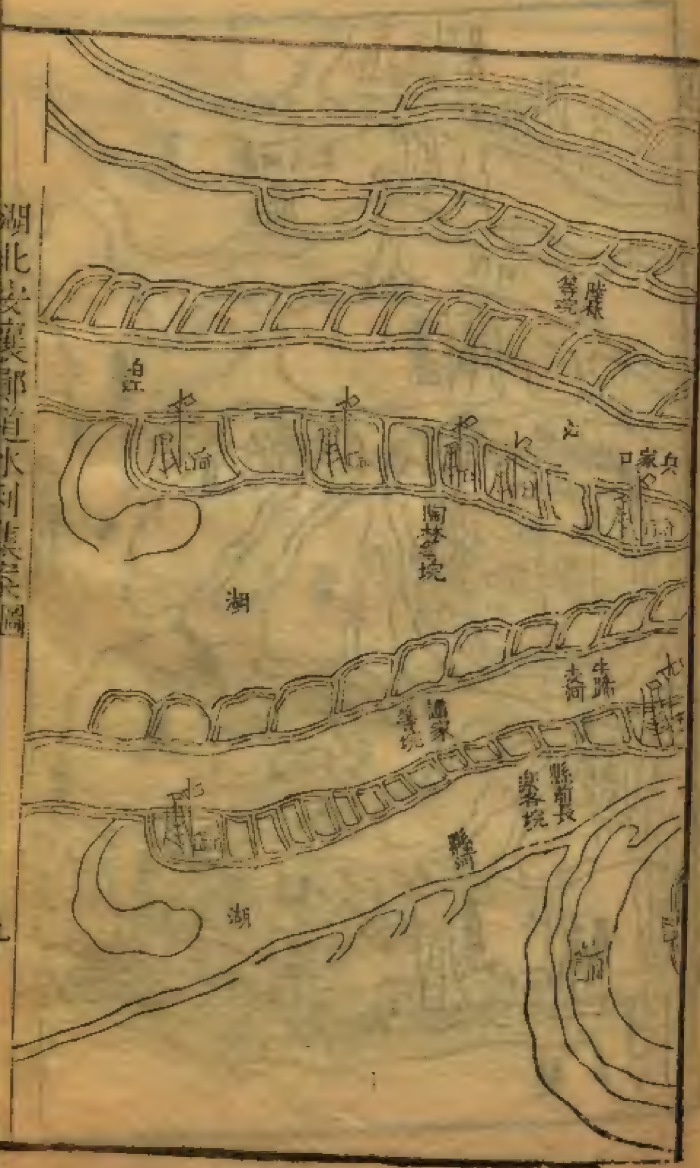 湖北安襄鄖道水利集案圖
等垸
白江
兵家口
陶林等垸
湖
牛蹄
支河
潘家
等垸
縣前長
樂等垸
縣河
湖